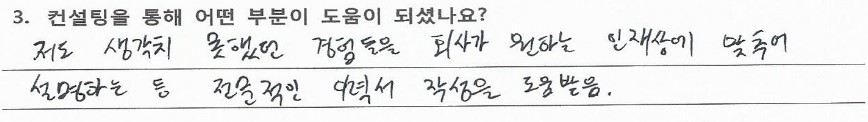 3. 컨설팅을 통해 어떤 부분이 도움이 되셨나요?
저도 생각치 못했던 경험들을 회사가 원하는 인재상에 맞추어
설명하는 등 전문적인 이력서 작성을 도움받음.